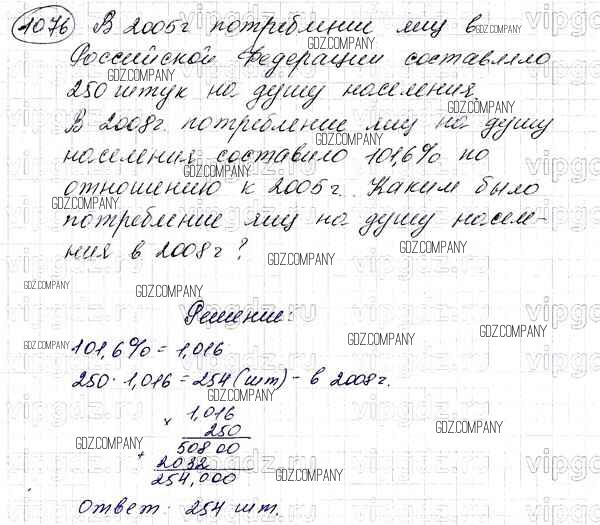 1076 В 2005г потреблении яиц в
Российской Федерации составляло
250 штук на душу населения.
В 2008г. потребление яиц на душу
населения составило 101,6% по
отношению к 2005г. Каким было
потребление яиц на душу населе-
ния в 2008г?
Решение:
101,6% = 1,016
250 · 1,016 = 254 (шт) - в 2008г.
× 1,016
250
50800
+ 2032
254,000
Ответ: 254 шт.
GDZ.COMPANY
vipgdz.ru